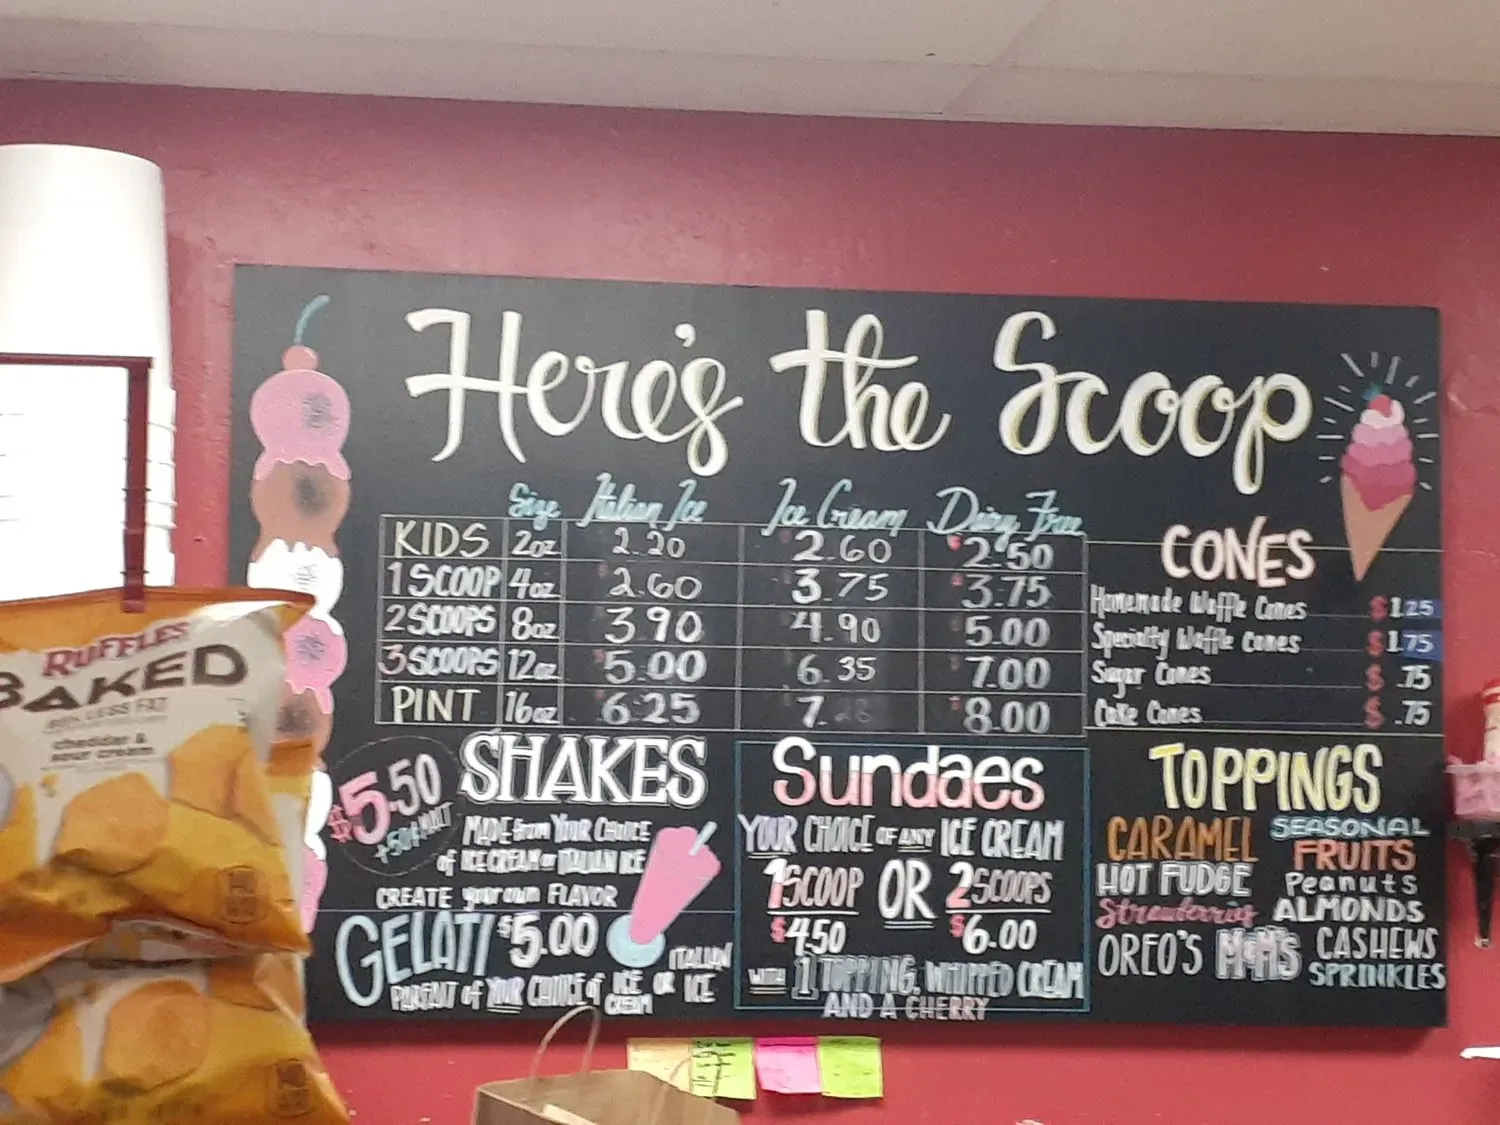 Here's the Scoop
Size Italian Ice Ice Cream Dairy Free
KIDS 2oz 2.20 2.60 2.50
1 SCOOP 4oz 2.60 3.75 3.75
2 SCOOPS 8oz 3.90 4.90 5.00
3 SCOOPS 12oz 5.00 6.35 7.00
PINT 16oz 6.25 7. 8.00
CONES
Homemade Waffle Cones $1.25
Specialty Waffle Cones $1.75
Sugar Cones $.75
Cake Cones $.75
$5.50
+50¢ MALT
SHAKES
MADE from YOUR CHOICE
of ICE CREAM or ITALIAN ICE
CREATE your own FLAVOR
GELATI $5.00
PARFAIT of YOUR CHOICE of ICE CREAM OR ITALIAN ICE
Sundaes
YOUR CHOICE OF ANY ICE CREAM
1 SCOOP OR 2 SCOOPS
$4.50 $6.00
WITH 1 TOPPING, WHIPPED CREAM
AND A CHERRY
TOPPINGS
CARAMEL
HOT FUDGE
Strawberries
OREO'S M&M'S
SEASONAL
FRUITS
Peanuts
ALMONDS
CASHEWS
SPRINKLES
RUFFLES
BAKED
cheddar &
sour cream